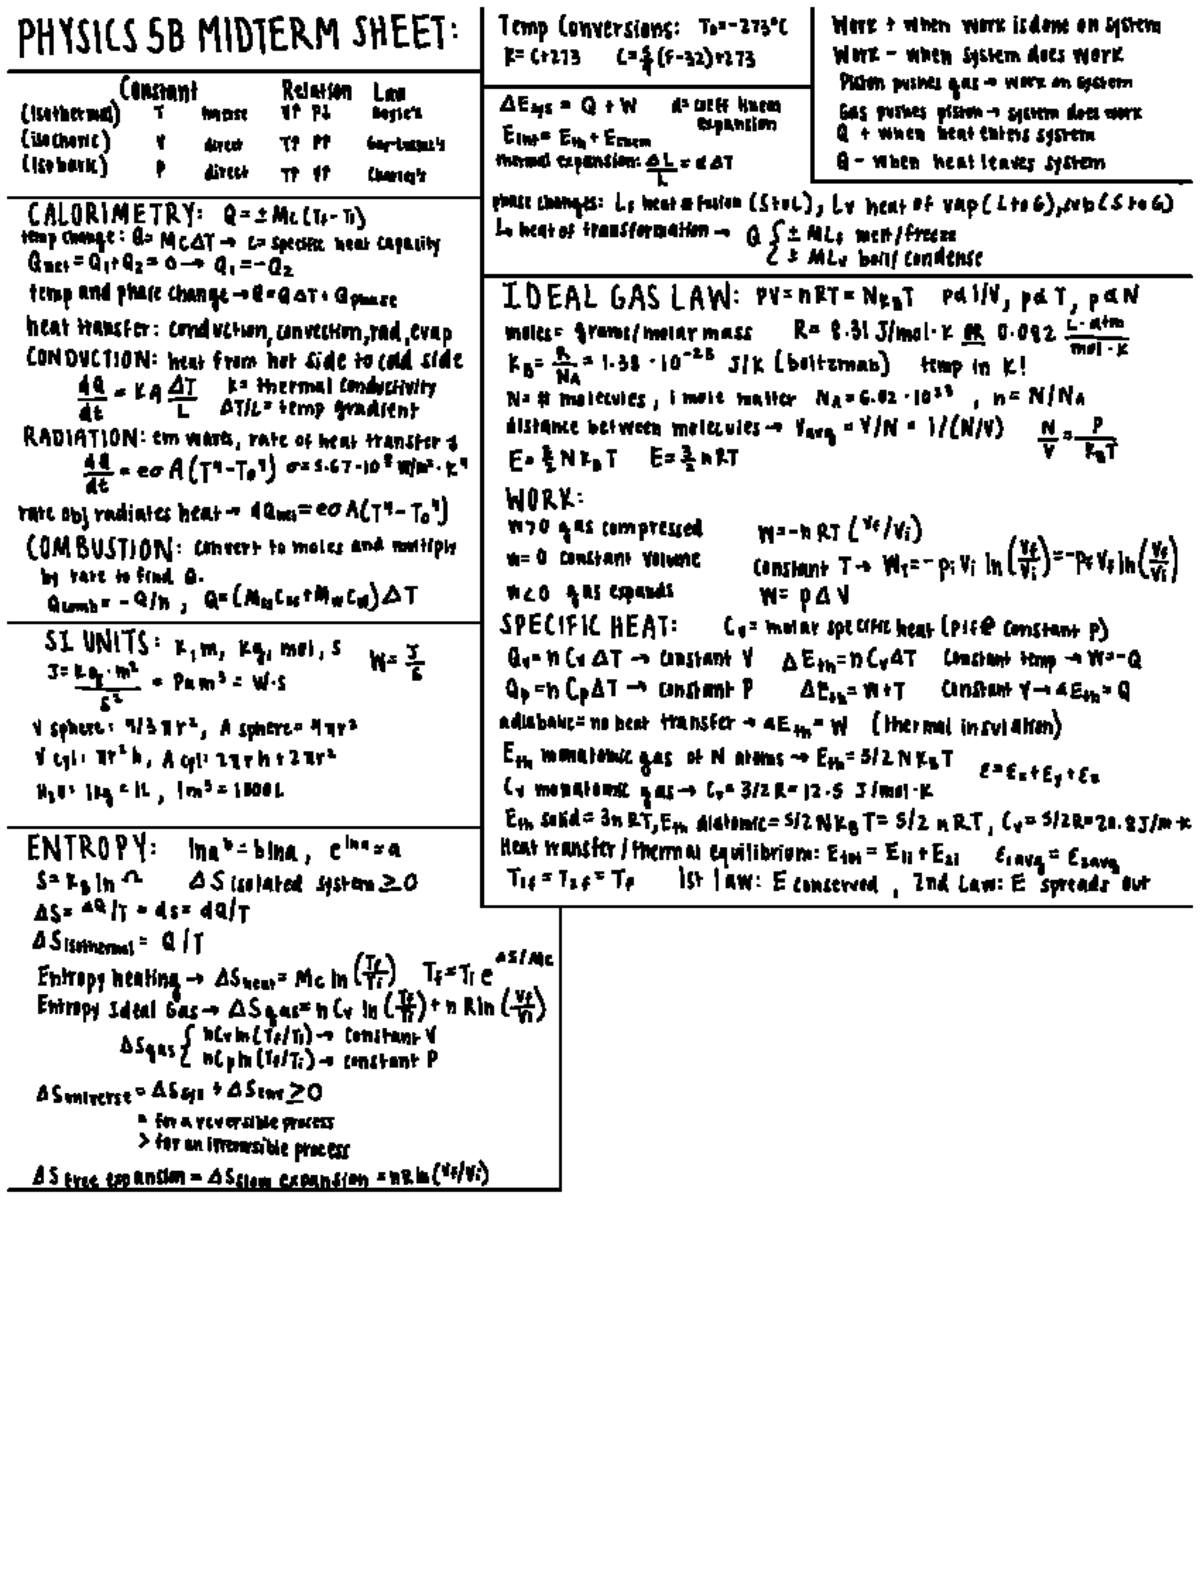 PHYSICS 5B MIDTERM SHEET:
Constant Relation Law
(isothermal) T inverse V↑ P↓ Boyle's
(isochoric) V direct T↑ P↑ Gay-Lussac's
(isobaric) P direct T↑ V↑ Charles's
CALORIMETRY: Q = ± Mc (Tf - Ti)
temp change: Q = McΔT → c = specific heat capacity
Qnet = Q1 + Q2 = 0 → Q1 = -Q2
temp and phase change → Q = QΔT + Qphase
heat transfer: conduction, convection, rad, evap
CONDUCTION: heat from hot side to cold side
dQ/dt = KA ΔT/L k = thermal conductivity
ΔT/L = temp gradient
RADIATION: em waves, rate of heat transfer
dQ/dt = eσA(T⁴ - To⁴) σ = 5.67·10⁻⁸ W/m²·K⁴
rate obj radiates heat → dQnet = eσA(T⁴ - To⁴)
COMBUSTION: convert to moles and multiply
by rate to find Q.
Qcomb = -Q/n ,
SI UNITS: K, m, kg, mol, s W = J/s
J = kg·m²/s² = Pa m³ = W·s
V sphere: 4/3 πr², A sphere = 4πr²
V cyl: πr²h, A cyl: 2πrh + 2πr²
H₂O: 1kg = 1L, 1m³ = 1000L
ENTROPY: ln aᵇ = b ln a, e^ln a = a
S = kB ln Ω ΔS isolated system ≥ 0
ΔS = ΔQ/T = ds = dQ/T
ΔS isothermal = Q/T
Entropy heating → ΔSheat = Mc ln (Tf/Ti) Tf = Ti e^ΔS/Mc
Entropy Ideal Gas → ΔSgas = n Cv ln (Tf/Ti) + n R ln (Vf/Vi)
ΔSgas { nCv ln (Tf/Ti) → constant V
nCp ln (Tf/Ti) → constant P
ΔSuniverse = ΔSsys + ΔSenv ≥ 0
= for a reversible process
> for an irreversible process
ΔS free expansion = ΔS slow expansion = nR ln (Vf/Vi)
Temp Conversions: To = -273°C
K = C + 273 C = 5/9 (F - 32) + 273
ΔEsys = Q + W α = coeff linear
expansion
Eint = Eth + Echem
thermal expansion: ΔL/L = αΔT
Work + when work is done on system
Work - when system does work
Piston pushes gas → work on system
Gas pushes piston → system does work
Q + when heat enters system
Q - when heat leaves system
phase changes: Lf heat of fusion (S to L), Lv heat of vap (L to G), sub (S to G)
L = heat of transformation → Q { ± MLf melt/freeze
± MLv boil/condense
IDEAL GAS LAW: PV = nRT = NkBT pα1/V, pαT, pαN
moles = grams/molar mass R = 8.31 J/mol·K OR 0.082 L·atm/mol·K
kB = R/NA = 1.38·10⁻²³ J/K (boltzman) temp in K!
N = # molecules, 1 mole matter NA = 6.02·10²³, n = N/NA
distance between molecules → Vavg = V/N = 1/(N/V) N/V = P/kBT
E = 3/2 NkBT E = 3/2 nRT
WORK:
W>0 gas compressed W = -nRT (Vf/Vi)
W = 0 constant volume constant T → WT = -piVi ln (Vf/Vi) = -pfVf ln (Vf/Vi)
W<0 gas expands W = pΔV
SPECIFIC HEAT: Cv = molar specific heat (pif@ constant p)
Qv = n CvΔT → constant V ΔEth = nCvΔT constant temp → W = -Q
Qp = n CpΔT → constant P ΔEth = W + T constant V → ΔEth = Q
adiabatic = no heat transfer → ΔEth = W (thermal insulation)
Eth monatomic gas of N atoms → Eth = 3/2 NKBT
Cv monatomic gas → Cv = 3/2 R = 12.5 J/mol·K
Eth solid = 3nRT, Eth diatomic = 5/2 NKBT = 5/2 nRT, Cv = 5/2R = 20.8 J/m·K
Heat transfer/thermal equilibrium: Etot = E1i + E2i ε1avg = ε2avg
T1f = T2f = Tf 1st law: E conserved, 2nd Law: E spreads out